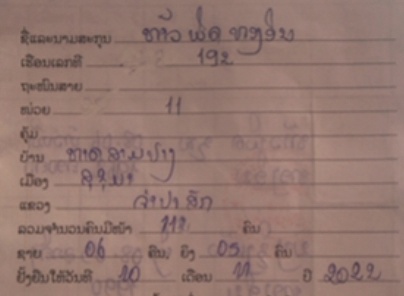 ຊື່ແລະນາມສະກຸນ ທ້າວ ພັດ ທອງອິນ
ເຮືອນເລກທີ 192
ຖະໜົນສາຍ
ໜ່ວຍ 11
ຄຸ້ມ
ບ້ານ ຫາດ
ເມືອງ ສຸຂຸມາ
ແຂວງ ຈໍາປາສັກ
ລວມຈໍານວນຄົນມີໜ້າ ຄົນ
ຊາຍ 06 ຄົນ, ຍິງ 05 ຄົນ
ຍັ້ງຢືນໃຫ້ວັນທີ 20 ເດືອນ 11 ປີ 2022